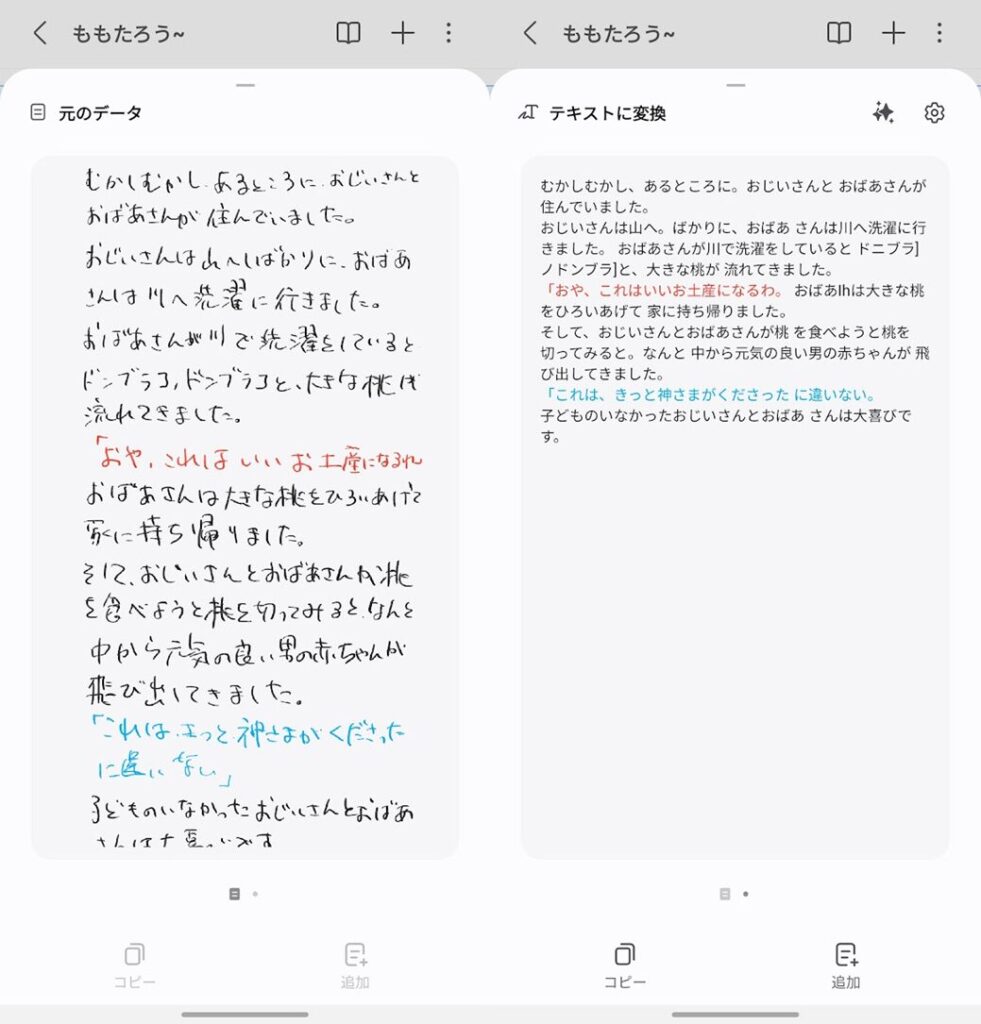 ももたろう~
元のデータ
むかしむかし、あるところに、おじいさんと
おばあさんが住んでいました。
おじいさんは山へしばかりに、おばあ
さんは川へ洗濯に行きました。
おばあさんが川で洗濯をしていると
ドンブラコ,ドンブラコと、大きな桃が
流れてきました。
「おや、これはいいお土産になるわ
おばあさんは大きな桃をひろいあげて
家に持ち帰りました。
そして、おじいさんとおばあさんが桃
を食べようと桃を切ってみると、なんと
中から元気の良い男の赤ちゃんが
飛び出してきました。
「これは、きっと、神さまがくださった
に違いない」
子どものいなかったおじいさんとおばあ
さんは大喜びです
コピー
追加
ももたろう~
テキストに変換
むかしむかし、あるところに。おじいさんと おばあさんが
住んでいました。
おじいさんは山へ。ばかりに、おばあ さんは川へ洗濯に行
きました。 おばあさんが川で洗濯をしていると ドニブラ]
ノドンブラ]と、大きな桃が 流れてきました。
「おや、これはいいお土産になるわ。 おばあlhは大きな桃
をひろいあげて 家に持ち帰りました。
そして、おじいさんとおばあさんが桃 を食べようと桃を
切ってみると。なんと 中から元気の良い男の赤ちゃんが 飛
び出してきました。
「これは、きっと神さまがくださった に違いない。
子どものいなかったおじいさんとおばあ さんは大喜びで
す。
コピー
追加